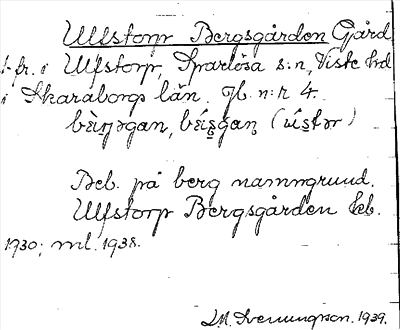 Ulfstorp Bergsgården Gård
t. fr. i Ulfstorp, Sparlösa s:n, Viste hd
i Skaraborgs län. Jb. n:r 4.
bèrŋəgan, (ústər)
Beb. på berg namngrund.
Ulfstorp Bergsgården kb.
1930; ml. 1938.
I.M. Svenungson. 1939.